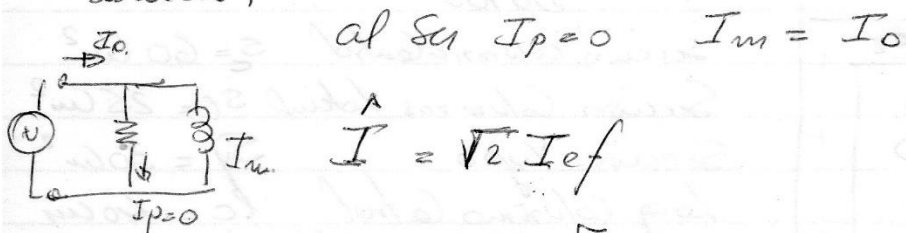 al ser Ip=0 Im = Io
Io
Im
Î = √2 Ief
Ip=0